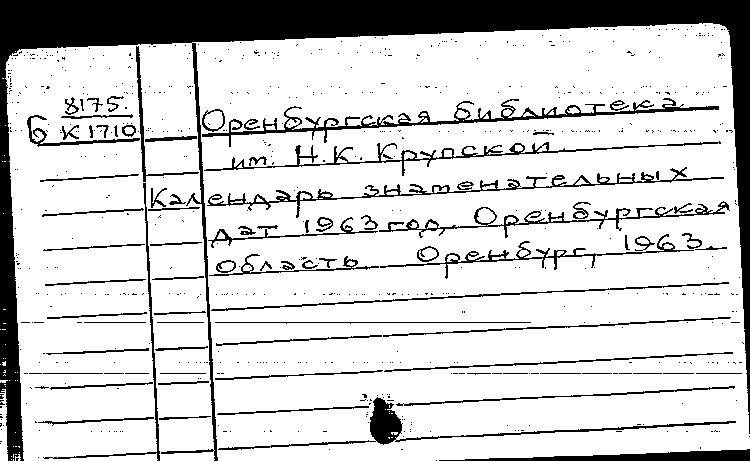 8175.
Б К1710
Оренбургская библиотека
им. Н.К. Крупской.
Календарь знаменательных
дат 1963 год, Оренбургская
область. Оренбург, 1963.